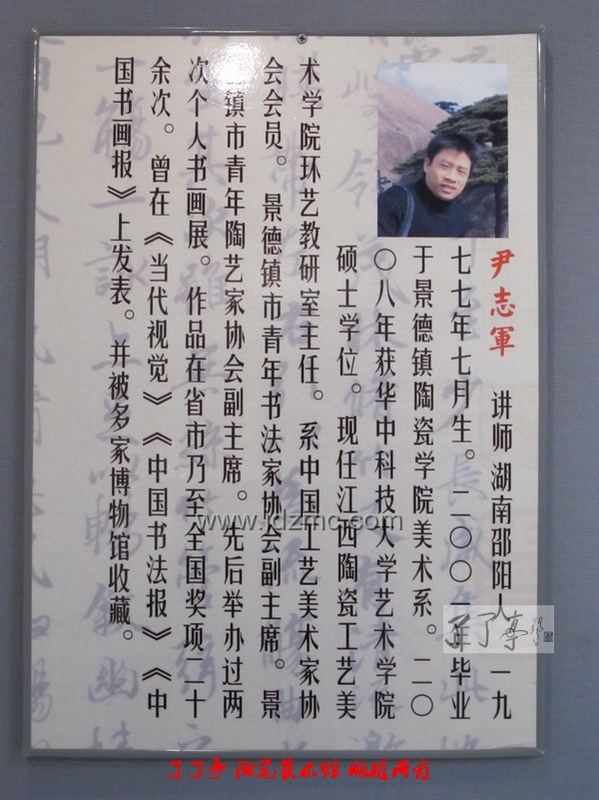 尹志軍
讲师 湖南邵阳人 一九
七七年七月生。二〇〇一年毕业
于景德镇陶瓷学院美术系。二〇
〇八年获华中科技大学艺术学院
硕士学位。现任江西陶瓷工艺美
术学院环艺教研室主任。系中国工艺美术家协
会会员。景德镇市青年书法家协会副主席。景
德镇市青年陶艺家协会副主席。先后举办过两
次个人书画展。作品在省市乃至全国奖项二十
余次。曾在《当代视觉》《中国书法报》《中
国书画报》上发表。并被多家博物馆收藏。
www.jdzmc.com
了了亭
了了亭 陶瓷美术馆 版权所有